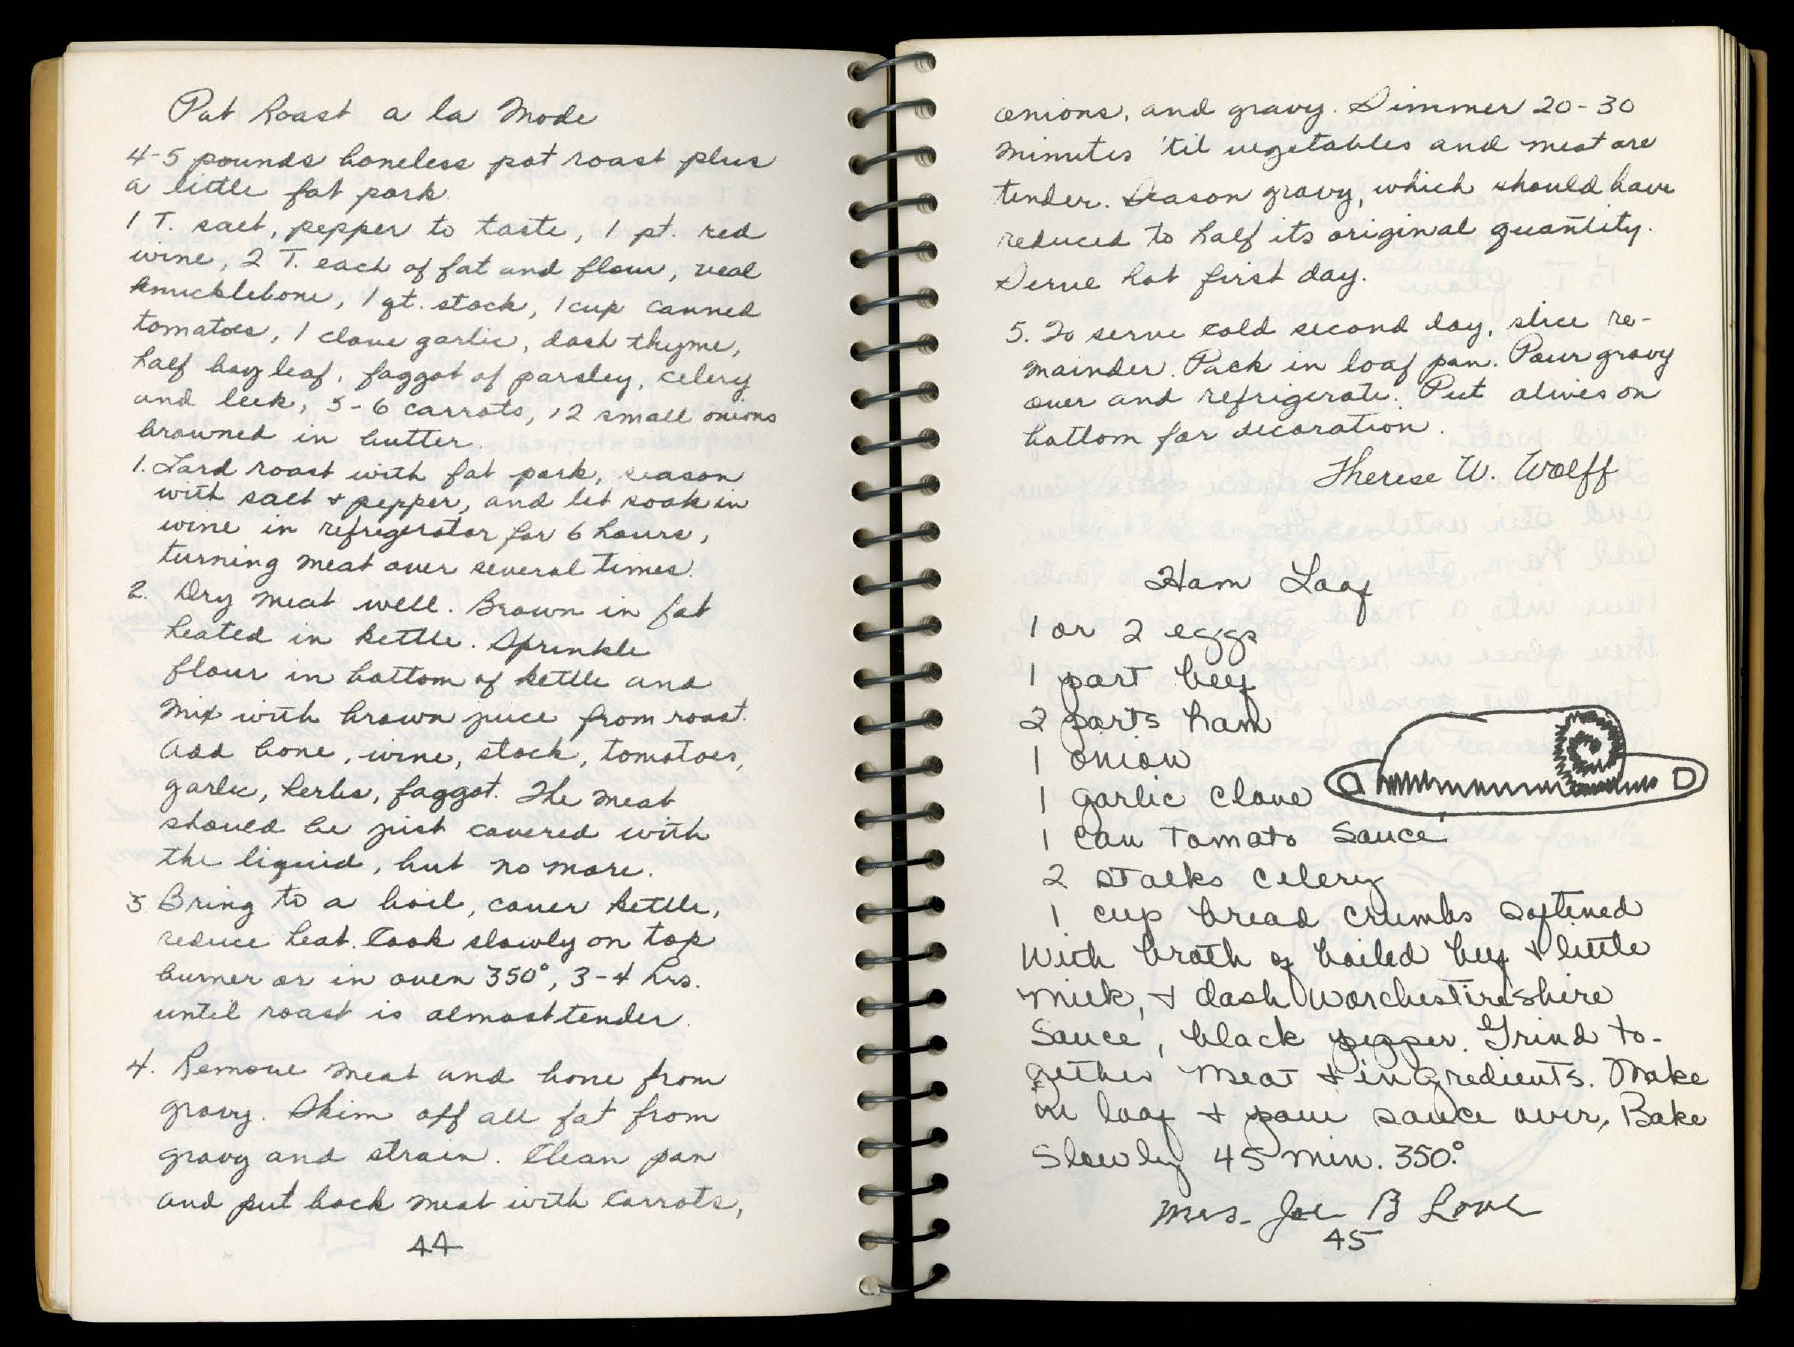 Pot Roast a la Mode
4-5 pounds boneless pot roast plus
a little fat pork.
1 T. salt, pepper to taste, 1 pt. red
wine, 2 T. each of fat and flour, veal
knucklebone, 1 qt. stock, 1 cup canned
tomatoes, 1 clove garlic, dash thyme,
half bay leaf, faggot of parsley, celery
and leek, 5-6 carrots, 12 small onions
browned in butter.
1. Lard roast with fat pork, season
with salt & pepper, and let soak in
wine in refrigerator for 6 hours,
turning meat over several times.
2. Dry meat well. Brown in fat
heated in kettle. Sprinkle
flour in bottom of kettle and
mix with brown juice from roast.
Add bone, wine, stock, tomatoes,
garlic, herbs, faggot. The meat
should be just covered with
the liquid, but no more.
3 Bring to a boil, cover kettle,
reduce heat. Cook slowly on top
burner or in oven 350°, 3-4 hrs.
until roast is almost tender.
4. Remove meat and bone from
gravy. Skim off all fat from
gravy and strain. Clean pan
and put back meat with carrots,
44
onions, and gravy. Simmer 20-30
minutes 'til vegetables and meat are
tender. Season gravy, which should have
reduced to half its original quantity.
Serve hot first day.
5. To serve cold second day, slice re-
mainder. Pack in loaf pan. Pour gravy
over and refrigerate. Put olives on
bottom for decoration.
Therese W. Wolff
Ham Loaf
1 or 2 eggs
1 part beef
2 parts ham
1 onion
1 garlic clove
1 can tomato sauce
2 stalks celery
1 cup bread crumbs softened
with broth of boiled beef & little
milk, & dash Worchestireshire
Sauce, black pepper. Grind to-
gether meat & ingredients. Make
in loaf & pour sauce over, Bake
Slowly 45 min. 350°.
Mrs. Joe B Love
45